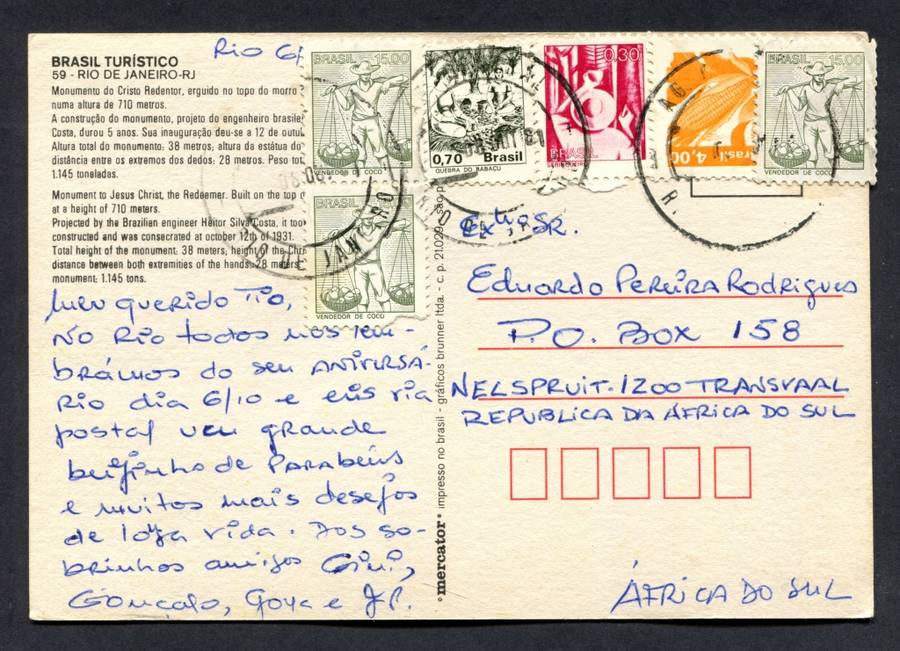 BRASIL TURÍSTICO
59 - RIO DE JANEIRO-RJ
Monumento do Cristo Redentor, erguido no topo do morro
numa altura de 710 metros.
A construção do monumento, projeto do engenheiro
Costa, durou 5 anos. Sua inauguração deu-se a 12 de
Altura total do monumento: 38 metros, altura da estátua
distância entre os extremos dos dedos: 28 metros. Peso
1.145 toneladas.
Monument to Jesus Christ, the Redeemer. Built on the top
at a height of 710 meters.
Projected by the Brazilian engineer Heitor Silva Costa, it
constructed and was consecrated at october 12th of 1931.
Total height of the monument: 38 meters, height of the
distance between both extremities of the hands: 28 meters
monument: 1.145 tons.
Rio 6/
Meu querido Tio,
No Rio todos nos lem-
brámos do seu ANIVERSÁ-
RIO dia 6/10 e eis via
postal um grande
beijinho de Parabéns
e muitos mais desejos
de longa vida. Dos so-
brinhos amigos Gini,
Gonçalo, Goya e J.P.
BRASIL 15,00
VENDEDOR DE COCO
0,70 Brasil
QUEBRA DO BABAÇU
0,30
BRASIL
Brasil 4,00
BRASIL 15,00
VENDEDOR DE COCO
BRASIL
VENDEDOR DE COCO
RIO DE JANEIRO
°mercator° impresso no brasil - gráficos brunner ltda. - c. p. 21.029 - são p
Exmo SR.
Eduardo Pereira Rodrigues
P.O. Box 158
NELSPRUIT-1200 TRANSVAAL
REPUBLICA DA ÁFRICA DO SUL
ÁFRICA DO SUL